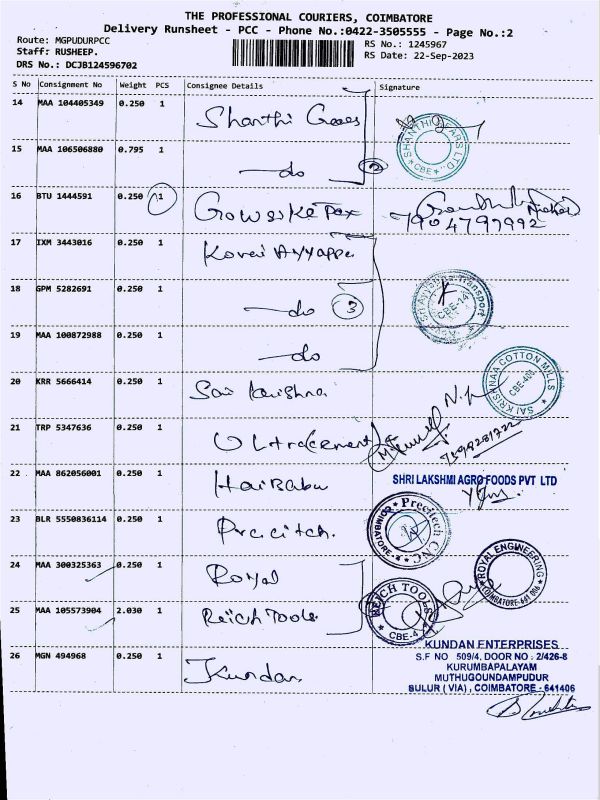 THE PROFESSIONAL COURIERS, COIMBATORE
Delivery Runsheet - PCC - Phone No.:0422-3505555 - Page No.:2
Route: MGPUDURPCC
Staff: RUSHEEP.
DRS No.: DCJB124596702
RS No.: 1245967
RS Date: 22-Sep-2023
S No Consignment No Weight PCS Consignee Details Signature
14 MAA 104405349 0.250 1 Shanthi Gears
SHANTHI GEARS LTD. CBE
15 MAA 106506880 0.795 1 do 2
16 BTU 1444591 0.250 1
7904797992
17 IXM 3443016 0.250 1 Kovai Ayyappa
18 GPM 5282691 0.250 1 do 3
Sri Ayyappa Transport CBE-14
19 MAA 100872988 0.250 1 do
20 KRR 5666414 0.250 1 Sai Krishna
SAI KRISHNAA COTTON MILLS
21 TRP 5347636 0.250 1 Ultra(cement)
22 MAA 862056001 0.250 1 HariBabu
SHRI LAKSHMI AGRO FOODS PVT LTD
23 BLR 5550836114 0.250 1 Precitch.
Precitech CNC COIMBATORE
24 MAA 300325363 0.250 1 Royal
ROYAL ENGINEERING COIMBATORE
25 MAA 105573904 2.030 1 Reich Tools
REICH TOOLS CBE-4
26 MGN 494968 0.250 1 Kundan
KUNDAN ENTERPRISES
S.F NO 509/4, DOOR NO : 2/426-8
KURUMBAPALAYAM
MUTHUGOUNDAMPUDUR
SULUR ( VIA) , COIMBATORE - 641406